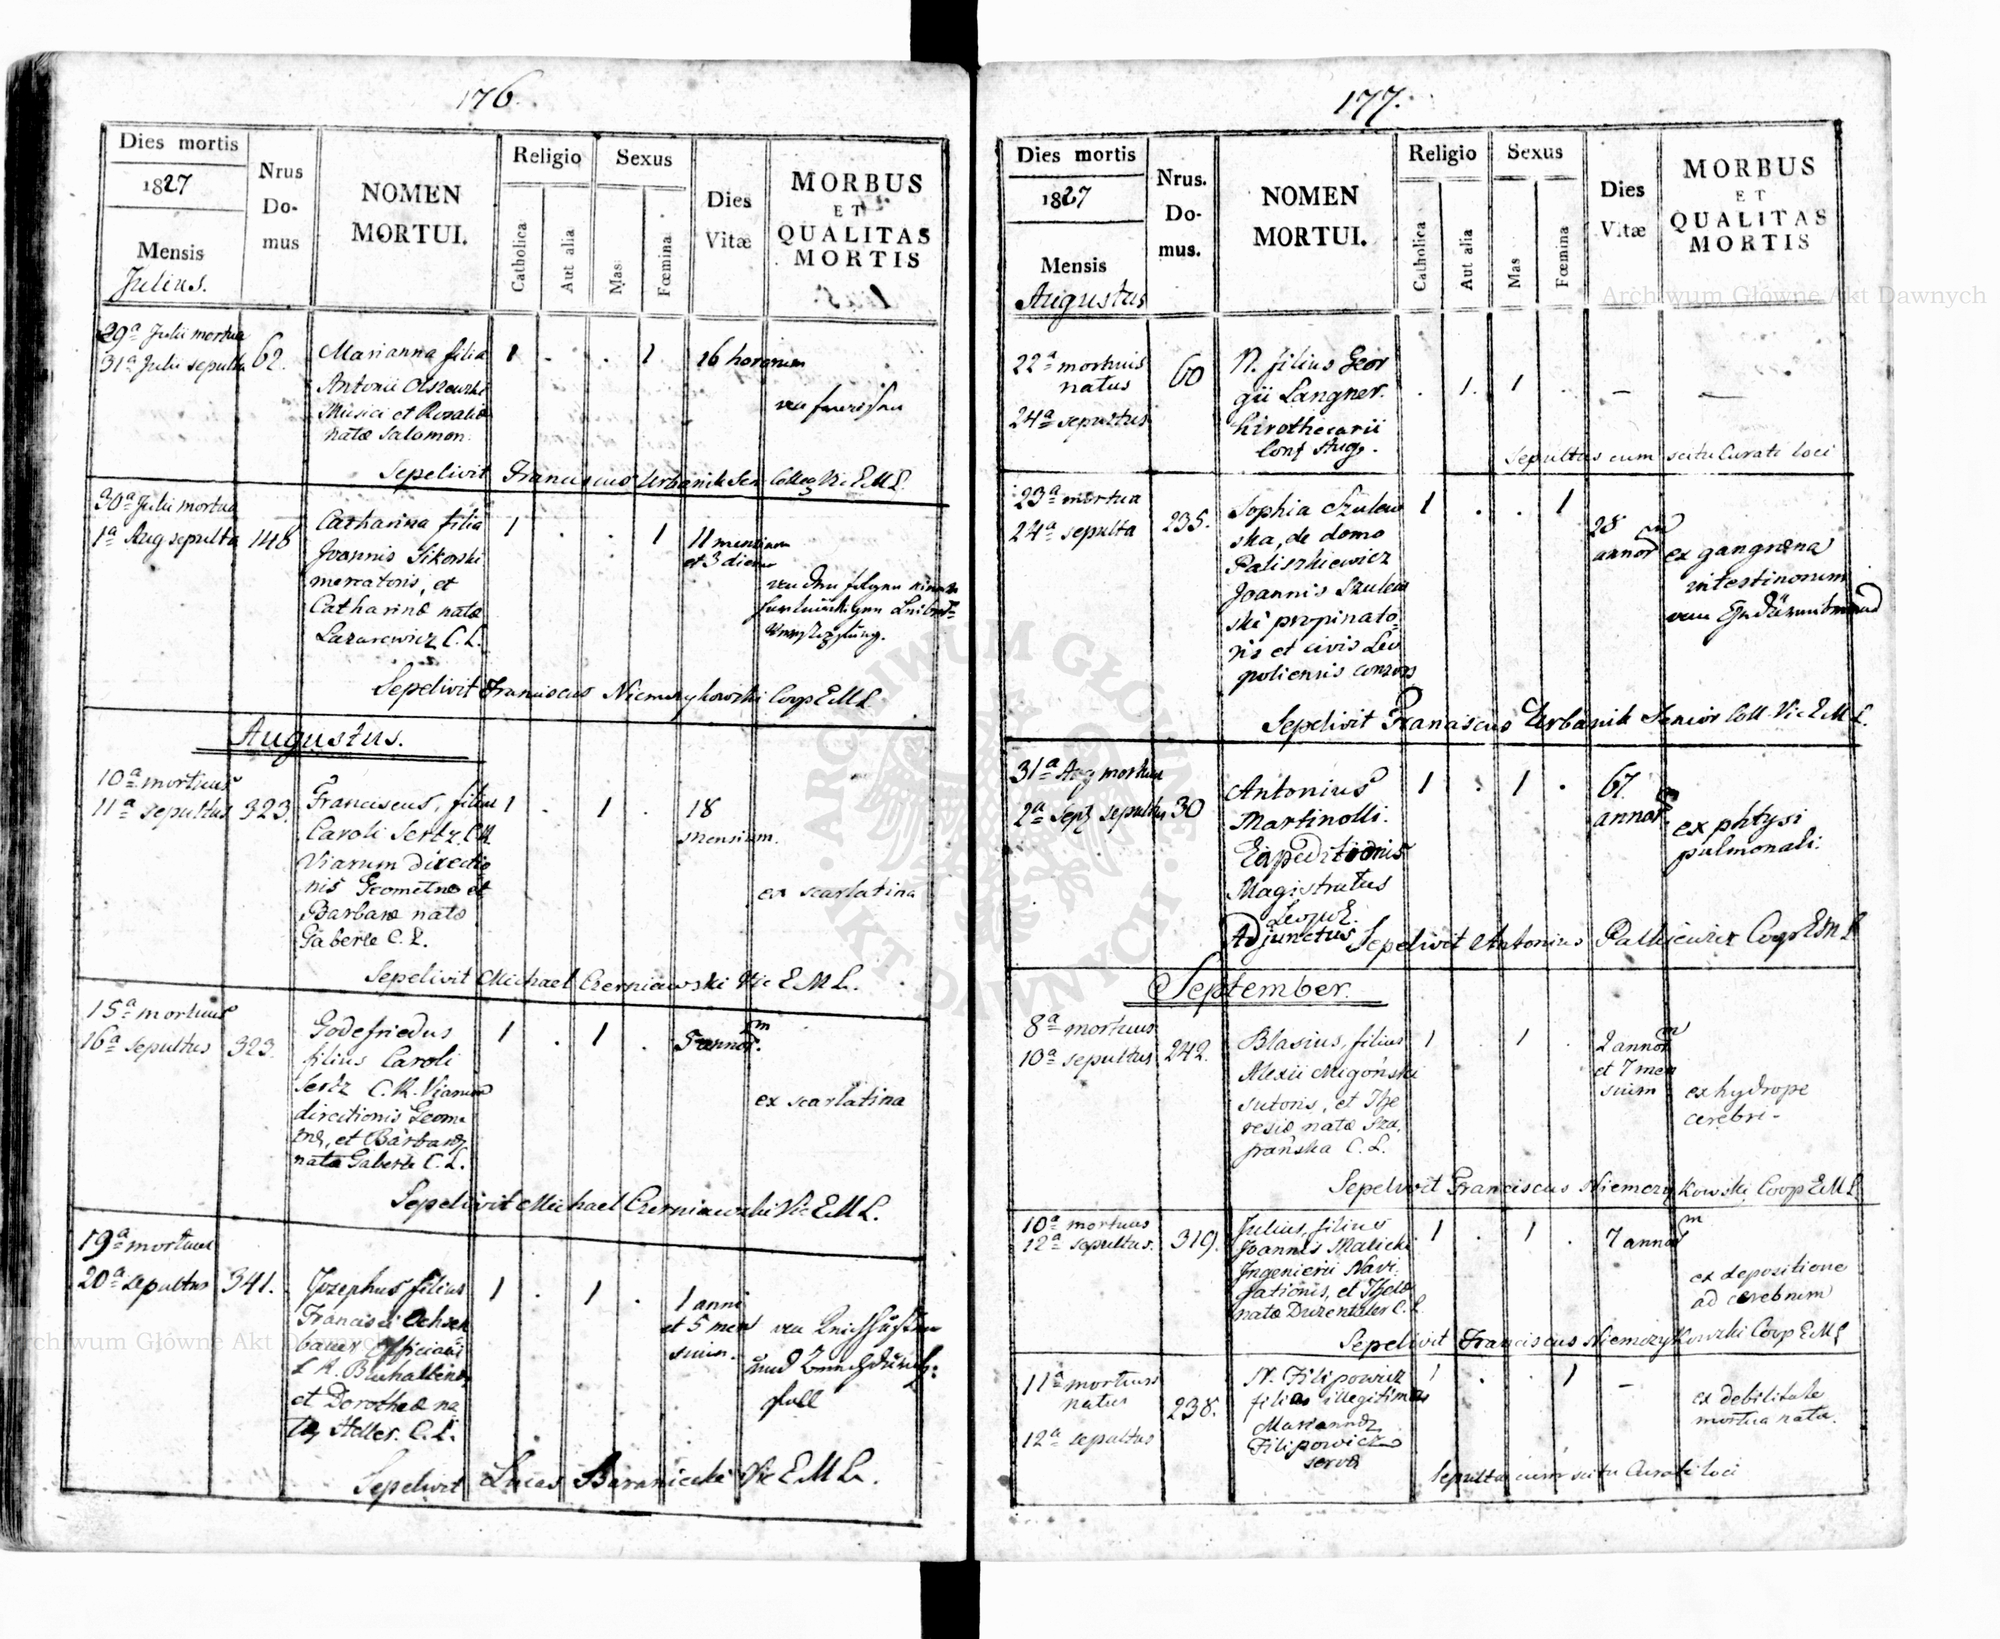 176.
Dies mortis
1827
Mensis
Julius.
Nrus
Do-
mus
NOMEN
MORTUI.
Religio
Catholica
Aut alia
Sexus
Mas
Fœmina
Dies
Vitæ
MORBUS
ET
QUALITAS
MORTIS
29a Julii mortua
31a Julii sepulta
62.
Marianna filia
Antonii Olszewski
Musici et Rosaliæ
natæ Salomon.
1 . . 1
16 horarum
Sepelivit Franciscus Urbanik Sen Colleg Vic E.M.L.
30a Julii mortua
1a Aug sepulta
148
Catharina filia
Joannis Sikorski
mercatoris, et
Catharinæ natæ
Lazarewicz C. L.
1 . . 1
11 mensium
et 3 dierum
Sepelivit Franciscus Niemczykowski Coop E.M.L.
Augustus.
10a mortuus
11a sepultus
323.
Franciscus, filius
Caroli Sertz C.R.
Viarum directio
nis Geometræ et
Barbaræ natæ
Gaberle C. L.
1 . 1 .
18
mensium.
ex scarlatina
Sepelivit Michael Czerniawski Vic E.M.L.
15a mortuus
16a sepultus
323.
Godefriedus
filius Caroli
Sertz C.R. Viarum
directionis Geome
træ, et Barbaræ
nata Gaberle C. L.
1 . 1 .
5 annorm.
ex scarlatina
Sepelivit Michael Czerniawski Vic E.M.L.
19a mortuus
20a sepultus
341.
Josephus filius
Francisci Ochsen
bauer Officialis
et Dorotheæ na
tæ Heller. C. L.
1 . 1 .
1 anni
et 5 men
sium.
und
Sepelivit Lucas Baraniecki Vic E.M.L.
177.
Dies mortis
1827
Mensis
Augustus
Nrus.
Do-
mus.
NOMEN
MORTUI.
Religio
Catholica
Aut alia
Sexus
Mas
Fœmina
Dies
Vitæ
MORBUS
ET
QUALITAS
MORTIS
22a mortuus
natus
24a sepultus
60
N. filius Geor
gii Langner.
hirothecarii
Conf Aug.
. 1. 1 .
—
—
Sepultus cum scitu Curati loci
23a mortua
24a sepulta
235.
Sophia Szulew
ska, de domo
Paliszkiewicz
Joannis Szulew
ski propinato-
ris et civis Leo
poliensis consors
1 . . 1
28
annorm
ex gangræna
intestinorum
Sepelivit Franciscus Urbanik Senior Coll. Vic E.M.L.
31a Aug mortuus
2a Sept sepultus
30
Antonius
Martinolli.
Expeditionis
Magistratus
Leopol.
Adjunctus
1 . 1 .
67.
annorm
ex phtysi
pulmonali.
Sepelivit Antonius Coop E.M.L
September.
8a mortuus
10a sepultus
242.
Blasius, filius
Alexii Migónski
sutoris, et The
resiæ natæ Sza,
frańska C. L.
1 . 1 .
2 annorm
et 7 men
sium
ex hydrope
cerebri-
Sepelivit Franciscus Niemczykowski Coop E.M.L
10a mortuus
12a sepultus.
319.
Julius, filius
Joannis Malicki
Ingenierii Navi
gationis, et Theklæ
natæ Durentaler C. L
1 . 1 .
7 annorm
ex depositione
ad cerebrum
Sepelivit Franciscus Niemczykowski Coop E.M.L
11a mortuus
natus
12a sepultus
238.
N. Filipowicz
filius illegitimus
Mariannæ
Filipowicz
servæ
1 . . 1
—
ex debilitate
mortua nata.
Sepulta cum scitu Curati loci
Archiwum Główne Akt Dawnych
Archiwum Główne Akt Dawnych
ARCHIWUM GŁÓWNE AKT DAWNYCH